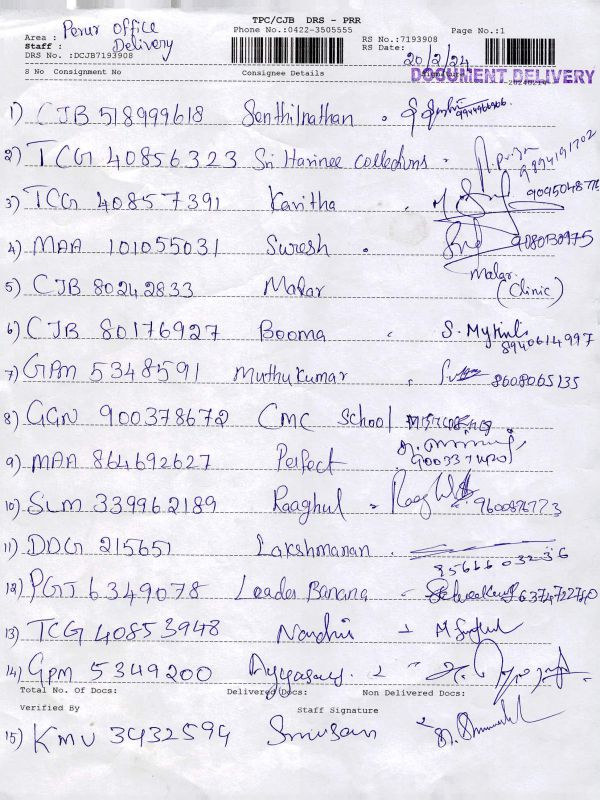 TPC/CJB DRS - PRR
Phone No.:0422-3505555
Page No.:1
Area : Perur Office
Staff : Delivery
DRS No. :DCJB7193908
RS No.:7193908
RS Date: 20/2/24
S No Consignment No Consignee Details Signature
DOCUMENT DELIVERY
1) CJB 518999618 Senthilnathan
2) TCG 40856323 Sri Harinee collections
9894191702
3) TCG 40857391 Kavitha
4) MAA 101055031 Suresh 9080130975
5) CJB 80242833 Malar Malar (Clinic)
6) CJB 80176927 Booma
8940614997
7) GPM 5348591 Muthukumar 8608065135
8) GGN 900378672 CMC School
9) MAA 864692627 Perfect
10) SLM 339962189 Raaghul
11) DDG 215651 Lakshmanan
12) PGT 6349078 Leader Banana
13) TCG 40853948
14) GPM 5349200
Total No. Of Docs: Delivered Docs: Non Delivered Docs:
Verified By Staff Signature
15) KMU 3432594